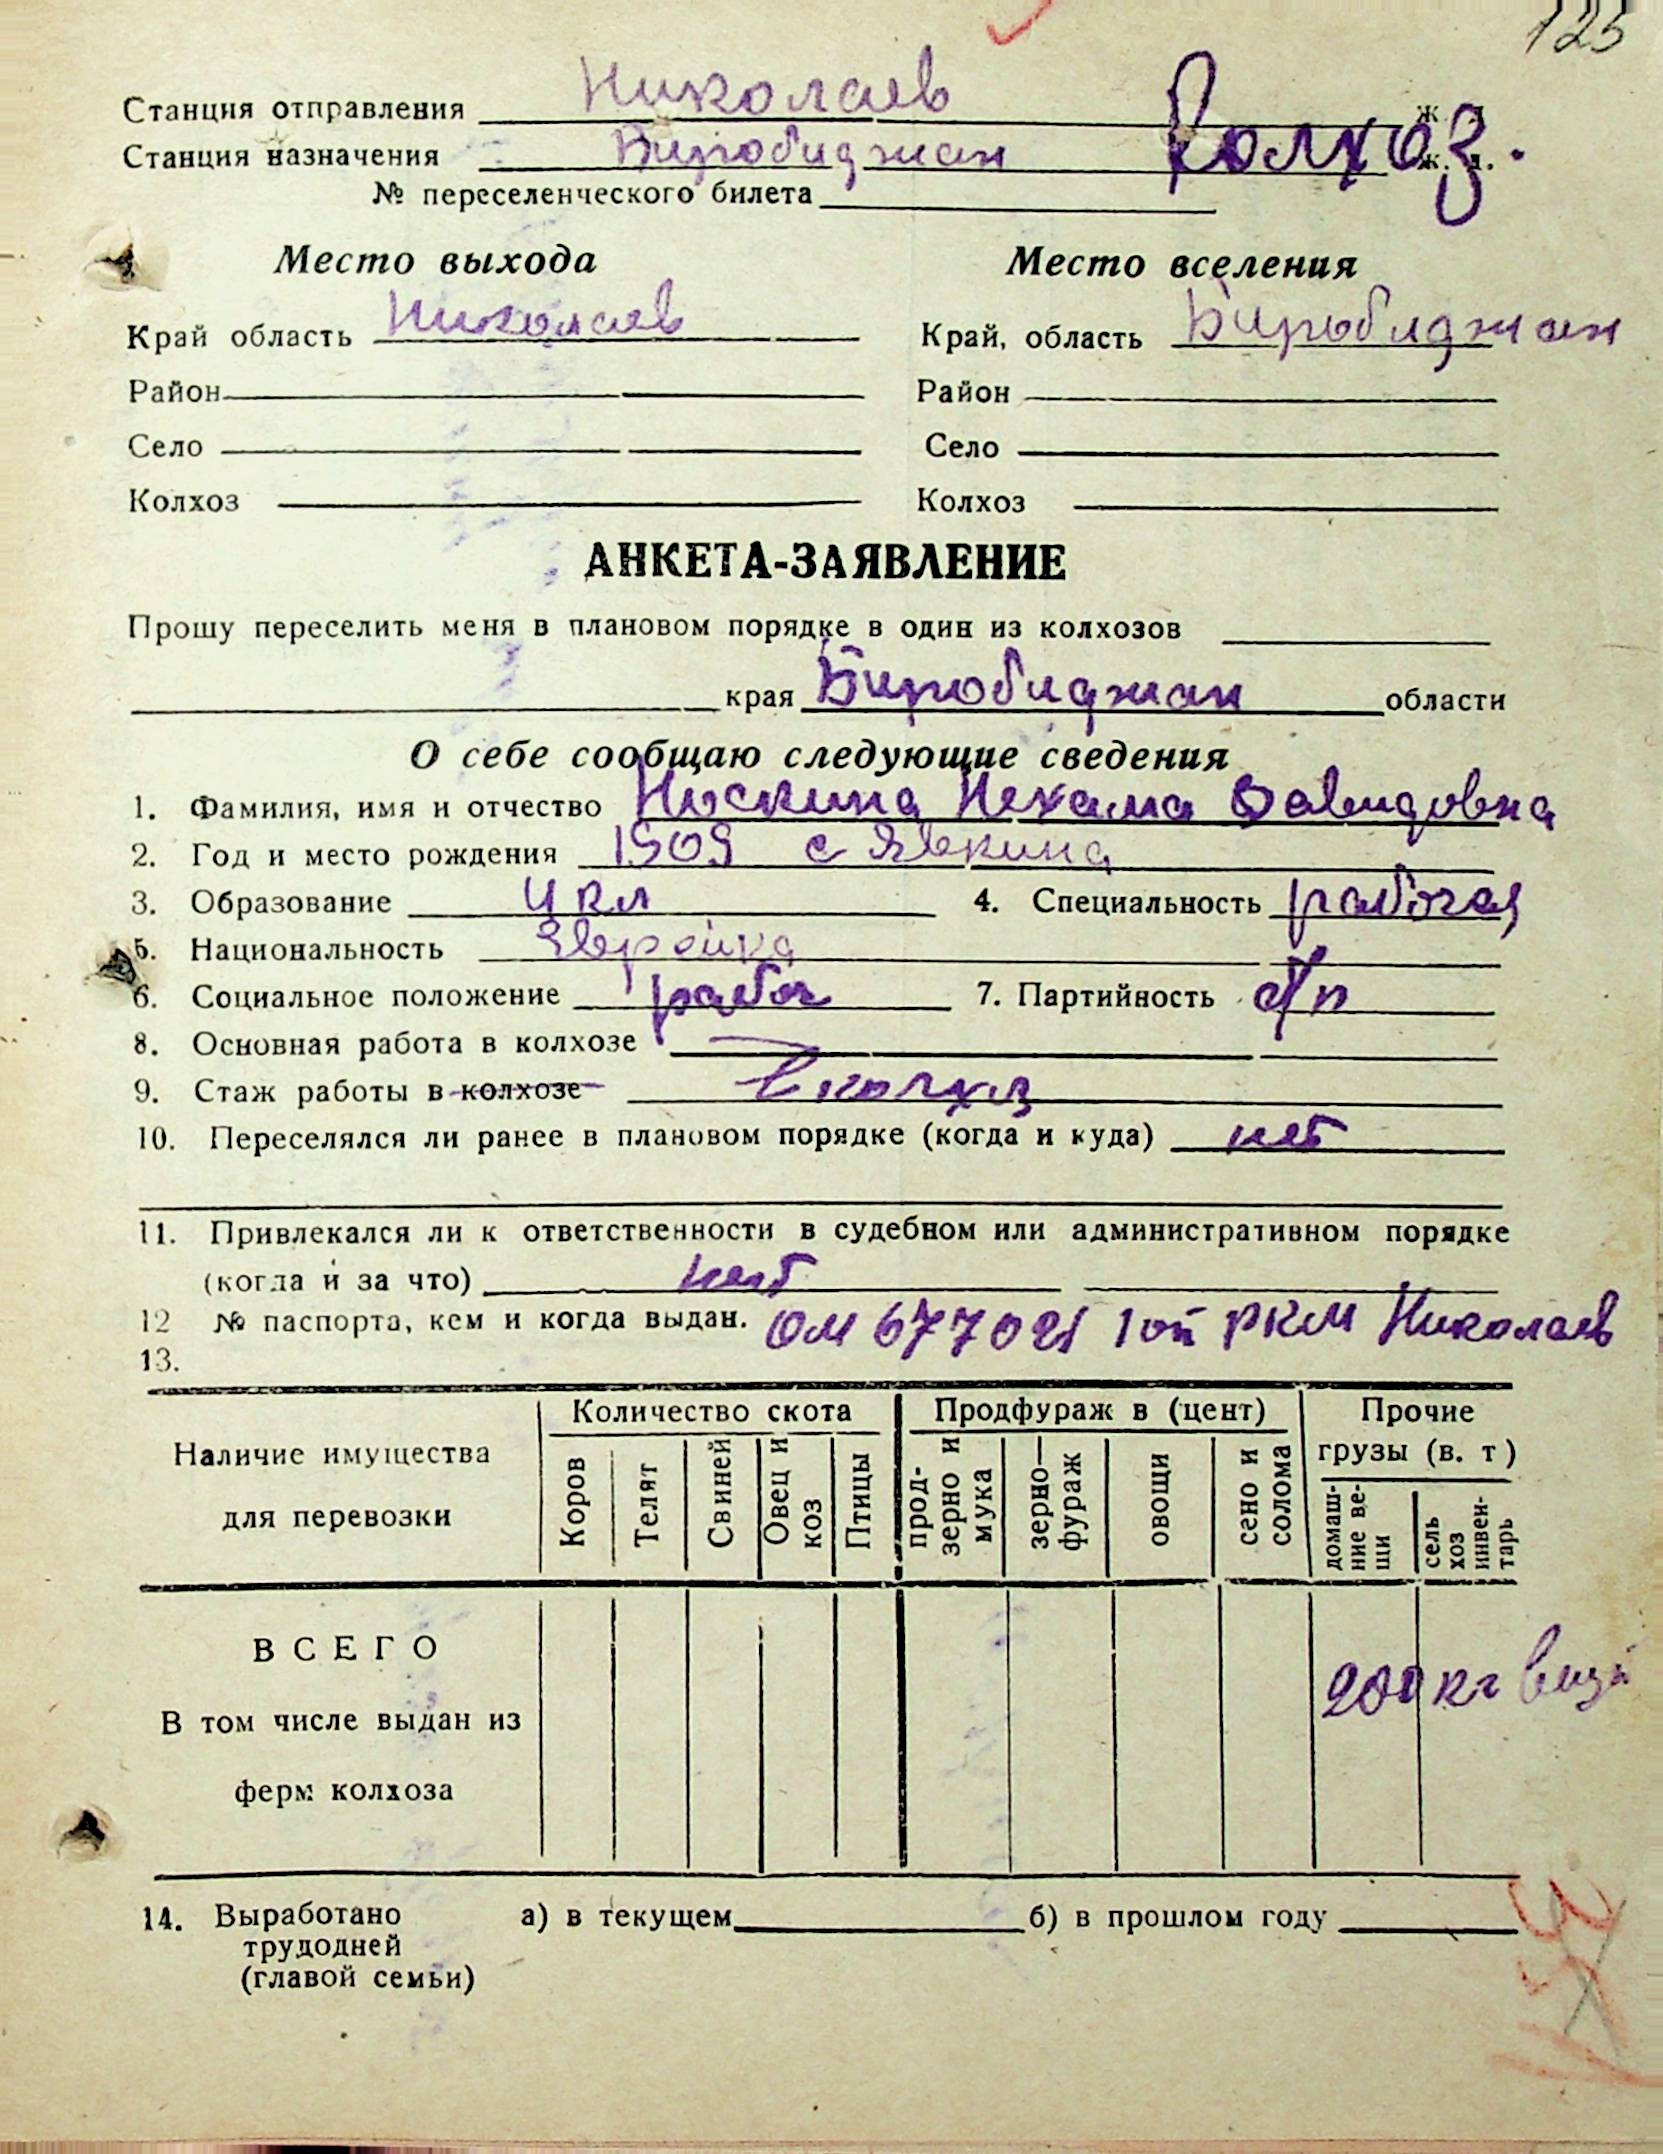 125
Станция отправления Николаев ж. д.
Станция назначения Биробиджан ж. д. Колхоз.
№ переселенческого билета
Место выхода Место вселения
Край область Николаев Край, область Биробиджан
Район Район
Село Село
Колхоз Колхоз
АНКЕТА-ЗАЯВЛЕНИЕ
Прошу переселить меня в плановом порядке в один из колхозов
края Биробиджан области
О себе сообщаю следующие сведения
1. Фамилия, имя и отчество Носкина Нехама Давидовна
2. Год и место рождения 1909 с Явкина
3. Образование 4 кл 4. Специальность рабочая
5. Национальность Еврейка
6. Социальное положение рабоч 7. Партийность б/п
8. Основная работа в колхозе
9. Стаж работы в колхозе в колхоз
10. Переселялся ли ранее в плановом порядке (когда и куда) нет
11. Привлекался ли к ответственности в судебном или административном порядке
(когда и за что) нет
12 № паспорта, кем и когда выдан. 1 от РКМ Николаев
13.
Наличие имущества для перевозки
Количество скота Продфураж в (цент) Прочие грузы (в. т)
Коров Телят Свиней Овец и коз Птицы прод-зерно и мука зерно—фураж овощи сено и солома домаш-ние ве-щи сель хоз инвен-тарь
ВСЕГО
200 кг вещ
В том числе выдан из
ферм колхоза
14. Выработано а) в текущем б) в прошлом году
трудодней
(главой семьи)